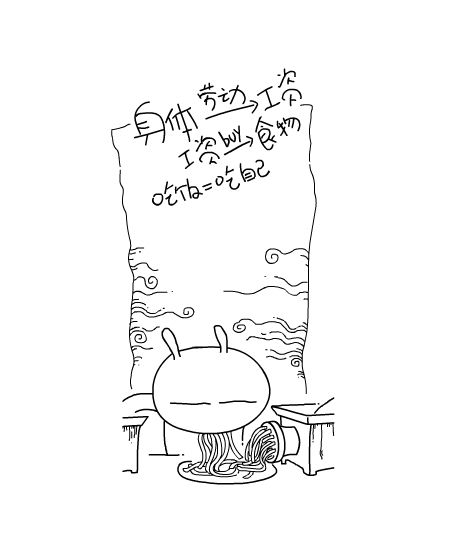 身体劳动→工资
工资buy→食物
吃饭=吃自己